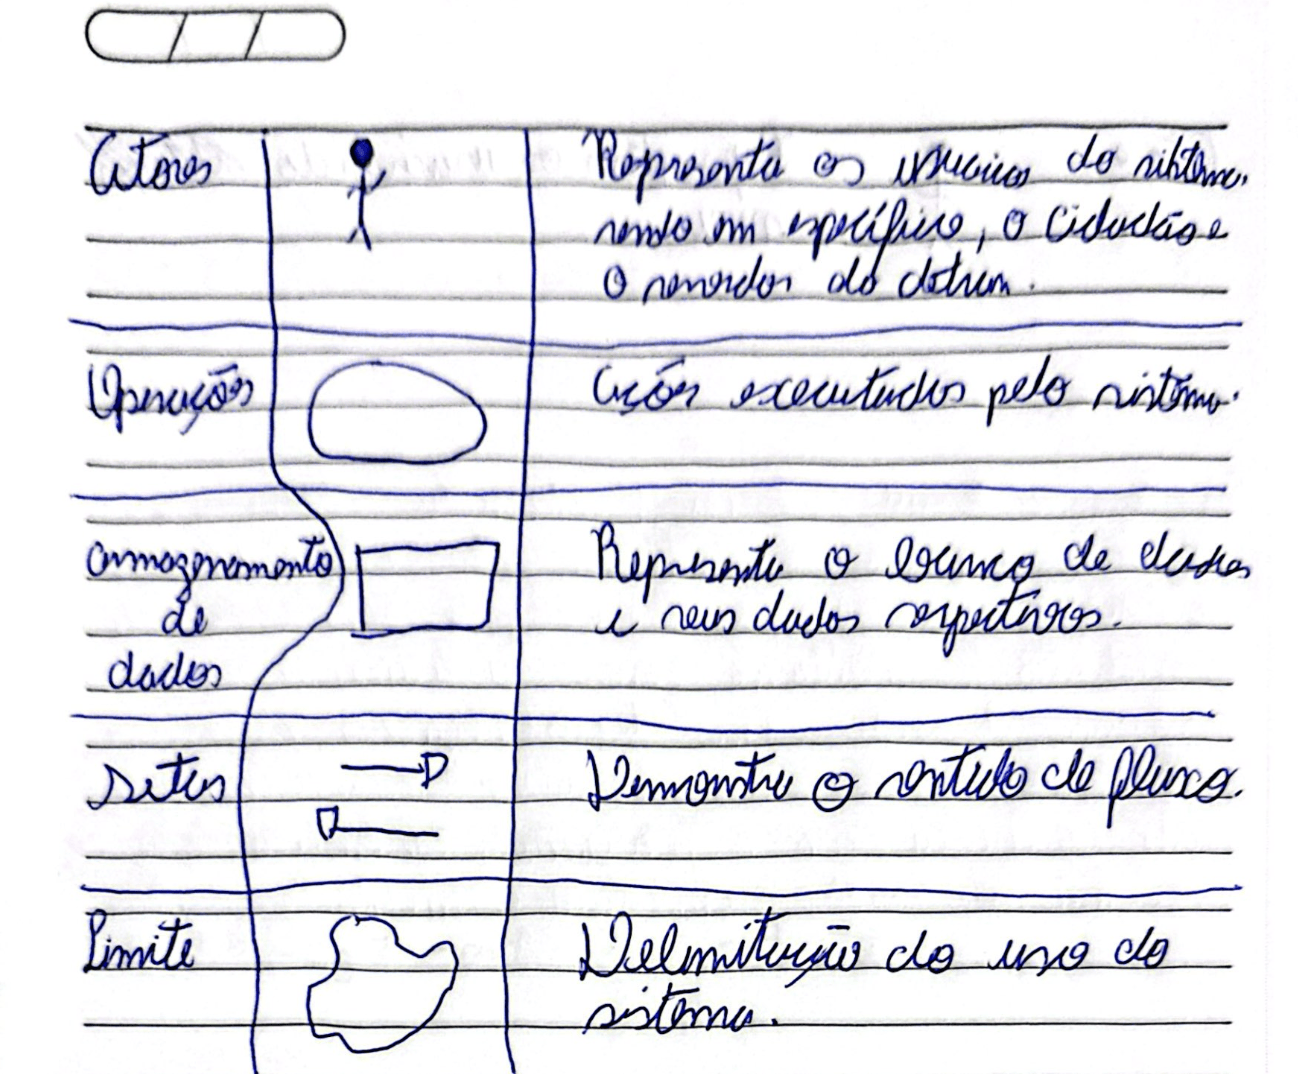 Atores
Representa os usuários do sistema,
sendo em específico, o cidadão e
o servidor do detran.
Operações
Ações executadas pelo sistema.
armazenamento
de
dados
Representa o banco de dados
e seus dados respectivos.
Setas
Demonstra o sentido de fluxo.
Limite
Delimitação do uso do
sistema.